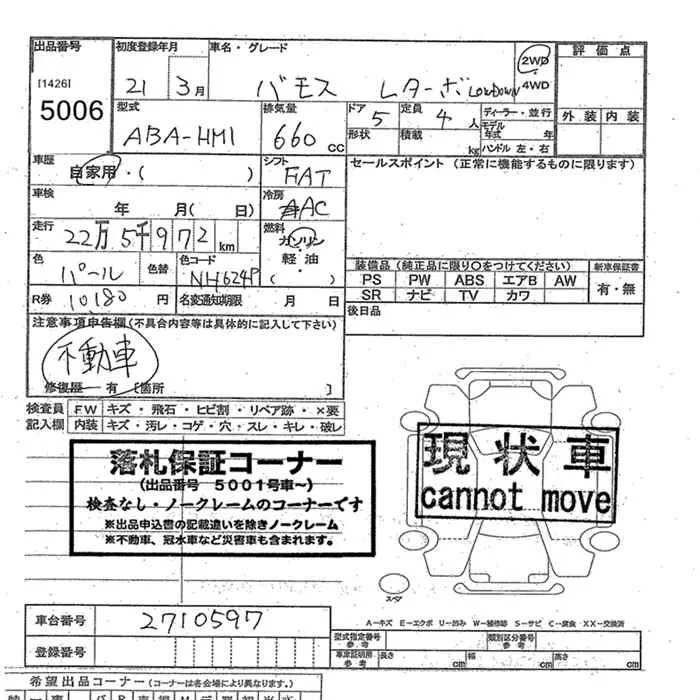 出品番号 初度登録年月 車名・グレード 評価点
[1426] 21 3月 バモス Lターボ LOWDOWN 2WD 4WD
5006
型式 排気量 ドア 定員 ディーラー・並行 外装 内装
ABA-HM1 660 CC 5 4人 モデル年式 年
形状 積載 kg ハンドル 左・右
車歴 自家用・( ) シフト FAT セールスポイント(正常に機能するものに限ります)
車検 年 月( 日) 冷房 AAC
走行 22万5千972km 燃料 ガソリン・軽油・( )
色 パール 色替 色コード NH624P 装備品(純正品に限り○をつけてください) 新車保証書
PS PW ABS エアB AW 有・無
R券 10180円 名変通知期限 月 日 SR ナビ TV カワ
注意事項申告欄(不具合内容等は具体的に記入して下さい) 後日品
不動車
修復歴 有 [箇所 ]
検査員 FW キズ・飛石・ヒビ割・リペア跡・×要
記入欄 内装 キズ・汚レ・コゲ・穴・スレ・キレ・破レ
落札保証コーナー
(出品番号 5001号車~)
検査なし・ノークレームのコーナーです
※出品申込書の記載違いを除きノークレーム
※不動車、冠水車など災害車も含まれます。
現状車
cannot move
スペア
A-キズ E-エクボ U-凹み W-補修跡 S-サビ C-腐食 XX-交換済
車台番号 2710597
型式指定番号 参考 類別区分番号 参考
登録番号 車庫証明用 参考 長さ cm 幅 cm 高さ cm
希望出品コーナー(コーナーは各会場により異なります。)